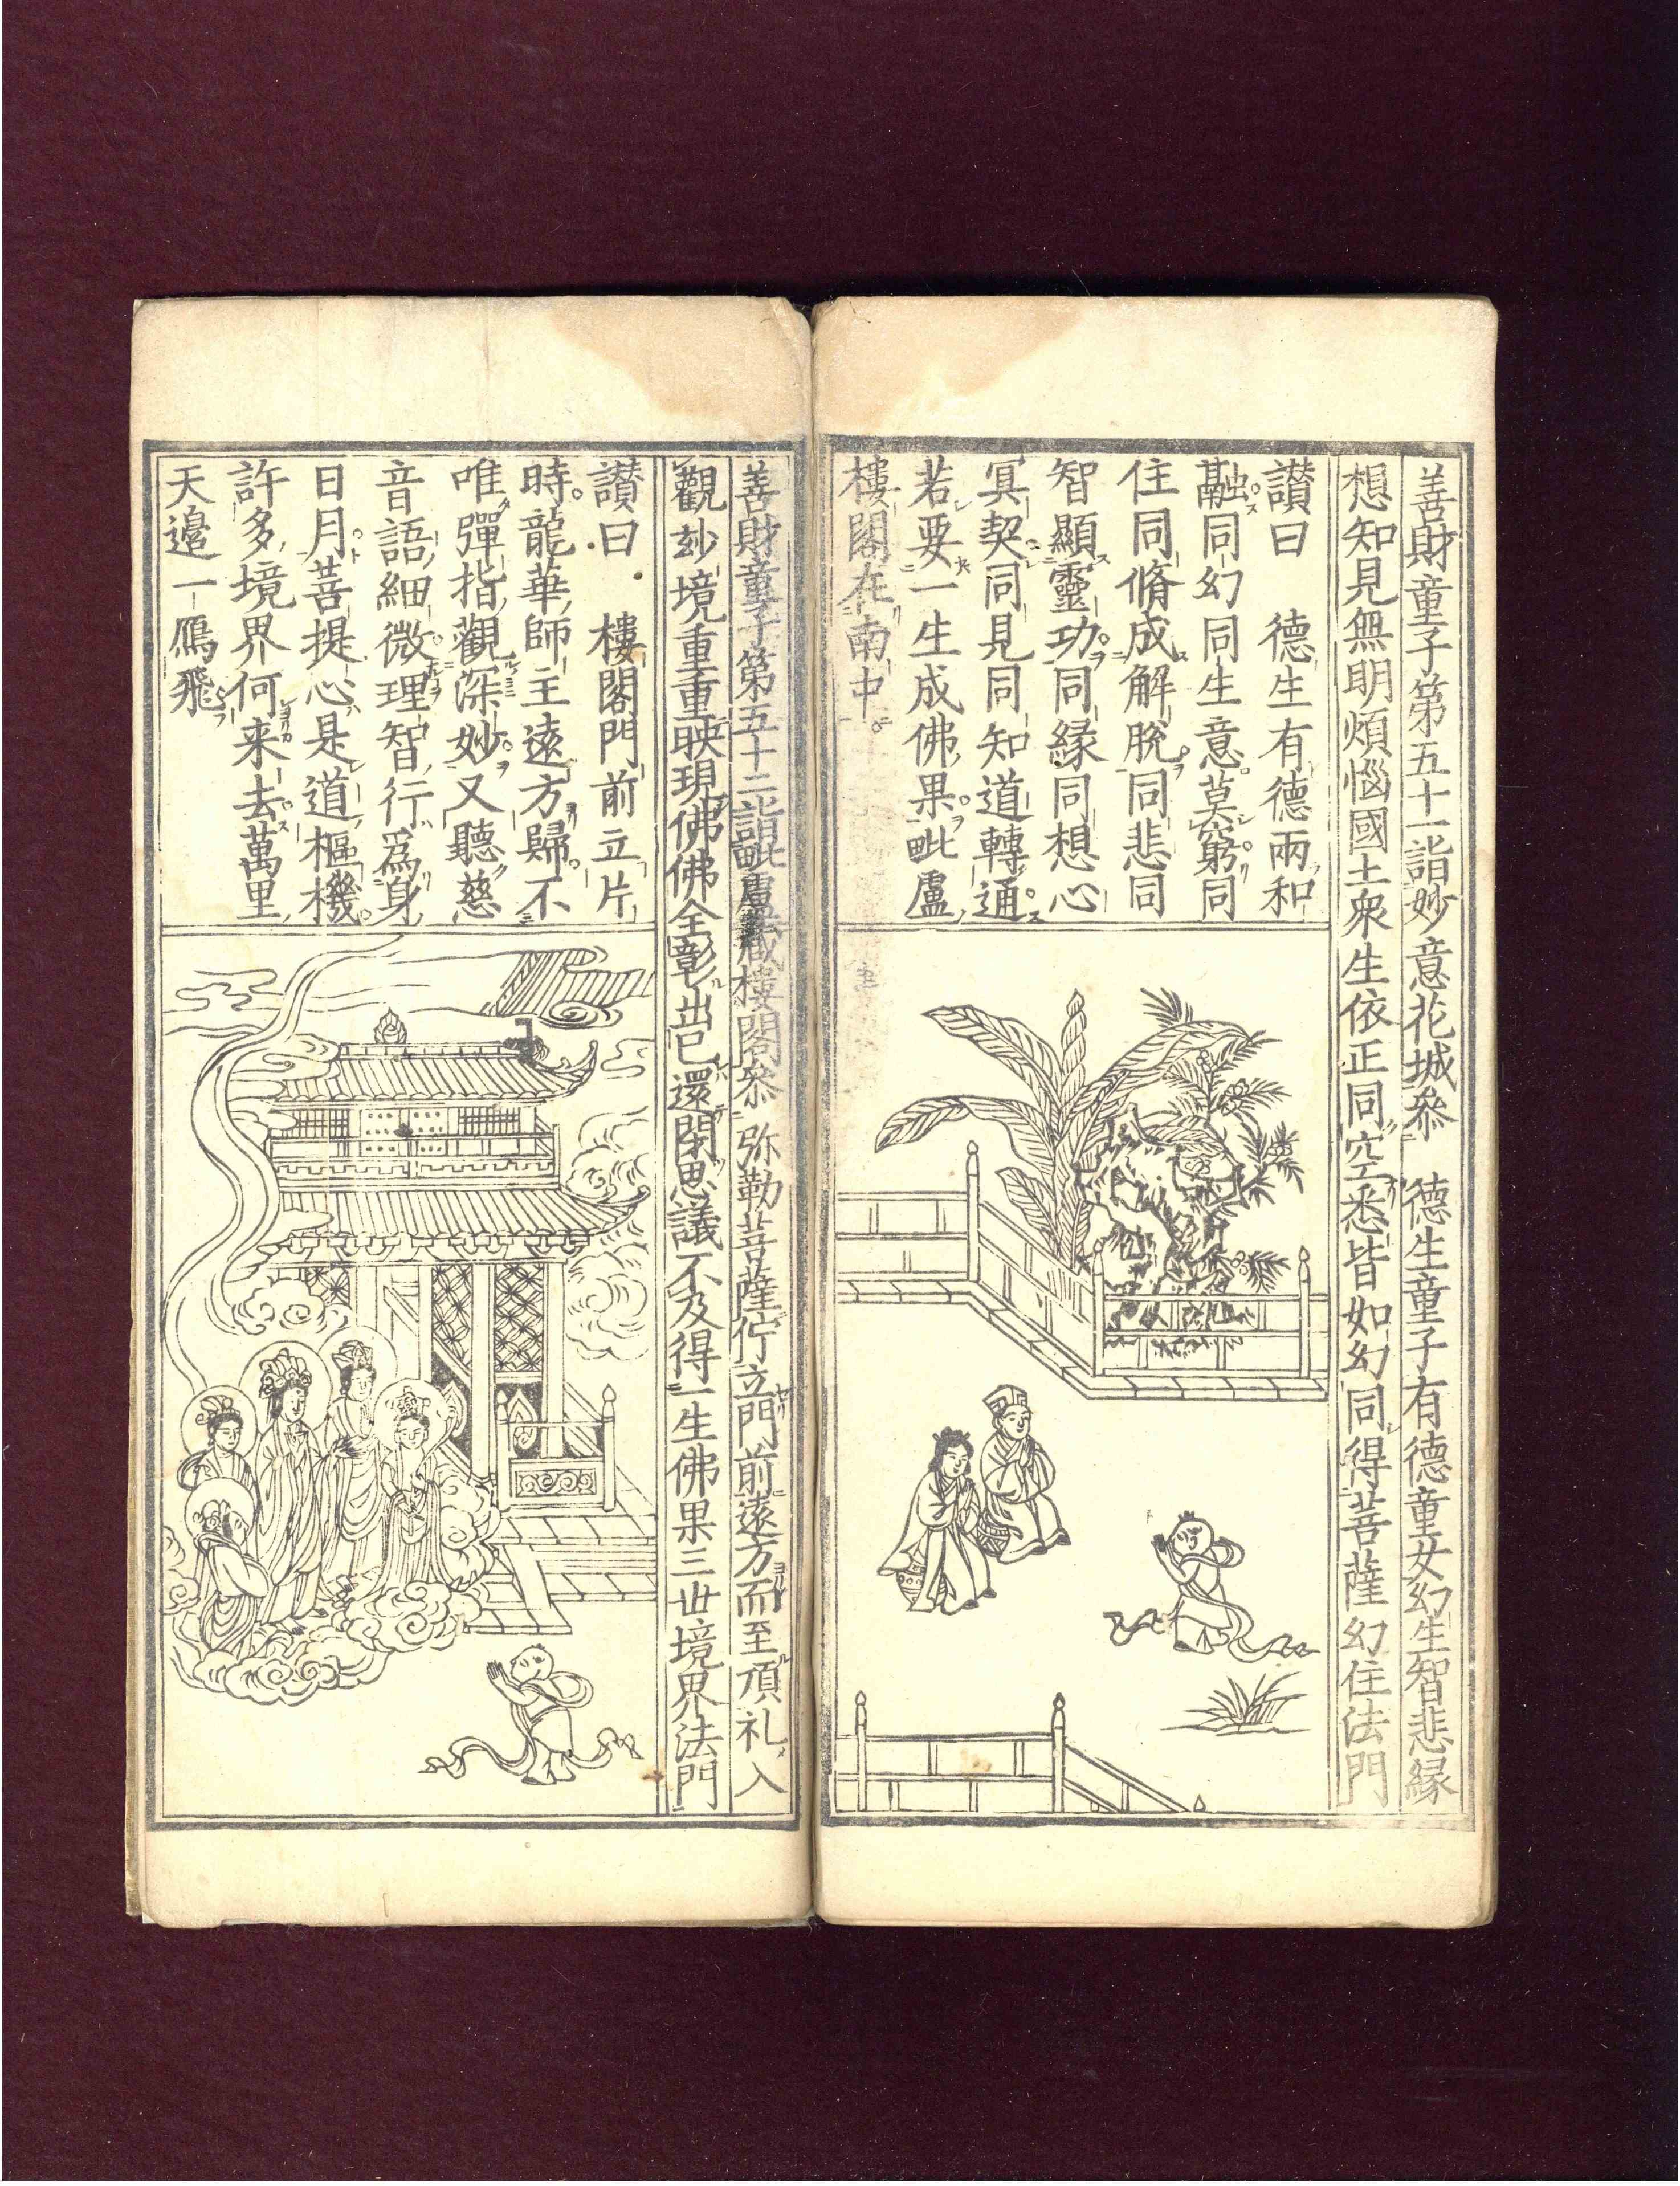 善財童子第五十一詣妙意花城叅　德生童子有德童女幻生智悲緣
想知見無明煩惱國土衆生依正同空悉皆如幻同得菩薩幻住法門
讃曰　德生有德兩和
融同幻同生意莫窮同
住同脩成解脫同悲同
智顯靈功同緣同想心
冥契同見同知道轉通
若要一生成佛果毗盧
樓閣在南中
善財童子第五十二詣毗盧藏樓閣叅　弥勒菩薩佇立門前遠方而至頂礼入
觀玅境重重映現佛佛全彰出已還閉思議不及得一生佛果三世境界法門
讃曰　樓閣門前立片
時龍華師主遠方歸不
唯彈指觀深妙又聽慈
音語細微理智行爲身
日月菩提心是道樞機
許多境界何来去萬里
天邉一鴈飛